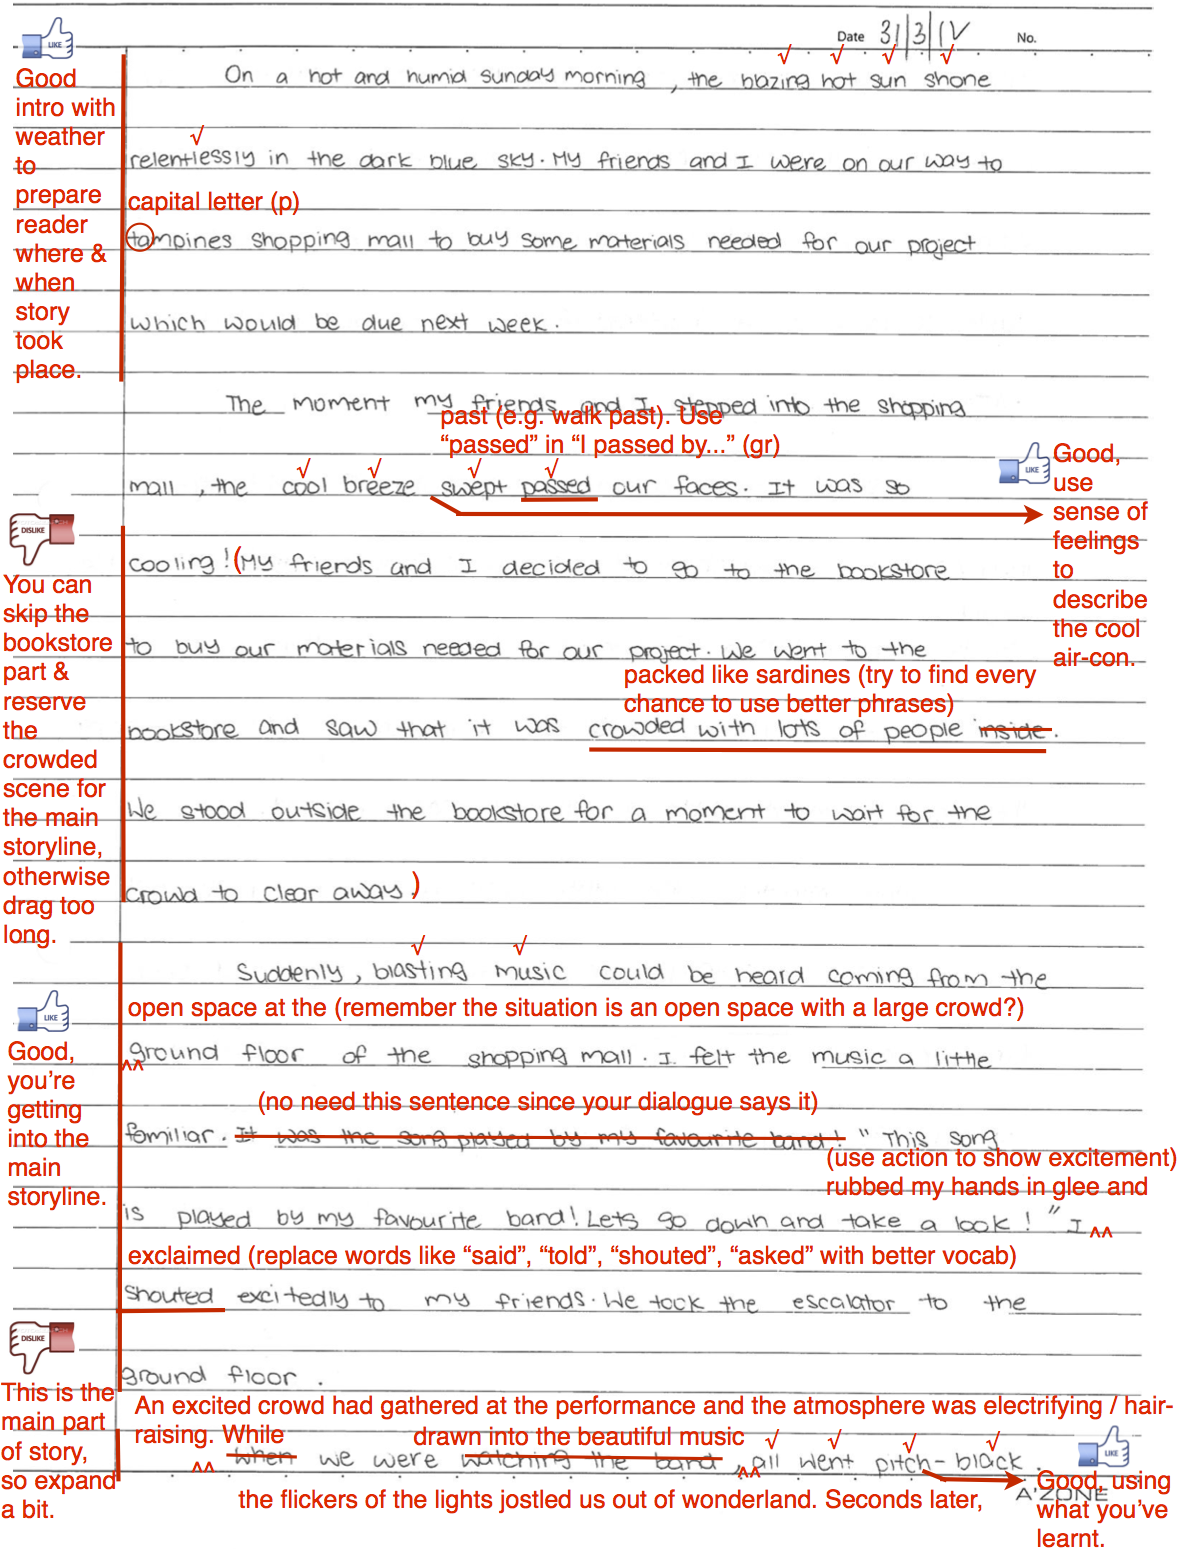 Date 31/3/1V No.
LIKE
Good
intro with
weather
to
prepare
reader
where &
when
story
took
place.
On a hot and humid sunday morning, the blazing hot sun shone
relentlessly in the dark blue sky. My friends and I were on our way to
capital letter (p)
tampines shopping mall to buy some materials needed for our project
which would be due next week.
The moment my friends and I stepped into the shopping
past (e.g. walk past). Use
"passed" in "I passed by..." (gr)
mall, the cool breeze swept passed our faces. It was so
LIKE
Good,
use
sense of
feelings
to
describe
the cool
air-con.
DISLIKE
You can
skip the
bookstore
part &
reserve
the
crowded
scene for
the main
storyline,
otherwise
drag too
long.
cooling! (My friends and I decided to go to the bookstore
to buy our materials needed for our project. We went to the
packed like sardines (try to find every
chance to use better phrases)
bookstore and saw that it was crowded with lots of people inside.
We stood outside the bookstore for a moment to wait for the
crowd to clear away.)
Suddenly, blasting music could be heard coming from the
open space at the (remember the situation is an open space with a large crowd?)
LIKE
Good,
you're
getting
into the
main
storyline.
^^ ground floor of the shopping mall. I felt the music a little
(no need this sentence since your dialogue says it)
familiar. It was the song played by my favourite band! "This song
(use action to show excitement)
rubbed my hands in glee and
is played by my favourite band! Lets go down and take a look!" I ^^
exclaimed (replace words like "said", "told", "shouted", "asked" with better vocab)
shouted excitedly to my friends. We took the escalator to the
ground floor.
DISLIKE
This is the
main part
of story,
so expand
a bit.
An excited crowd had gathered at the performance and the atmosphere was electrifying / hair-
raising. While drawn into the beautiful music
^^ when we were watching the band, ^^ all went pitch-black.
the flickers of the lights jostled us out of wonderland. Seconds later,
LIKE
Good, using
what you've
learnt.
A'ZONE